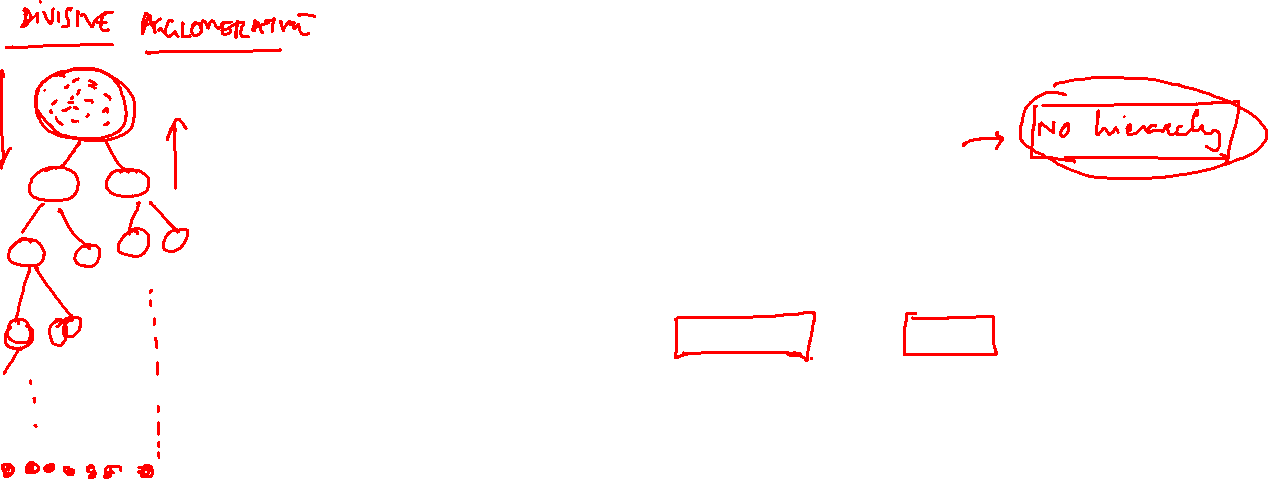 DIVISIVE AGGLOMERATIVE
No hierarchy